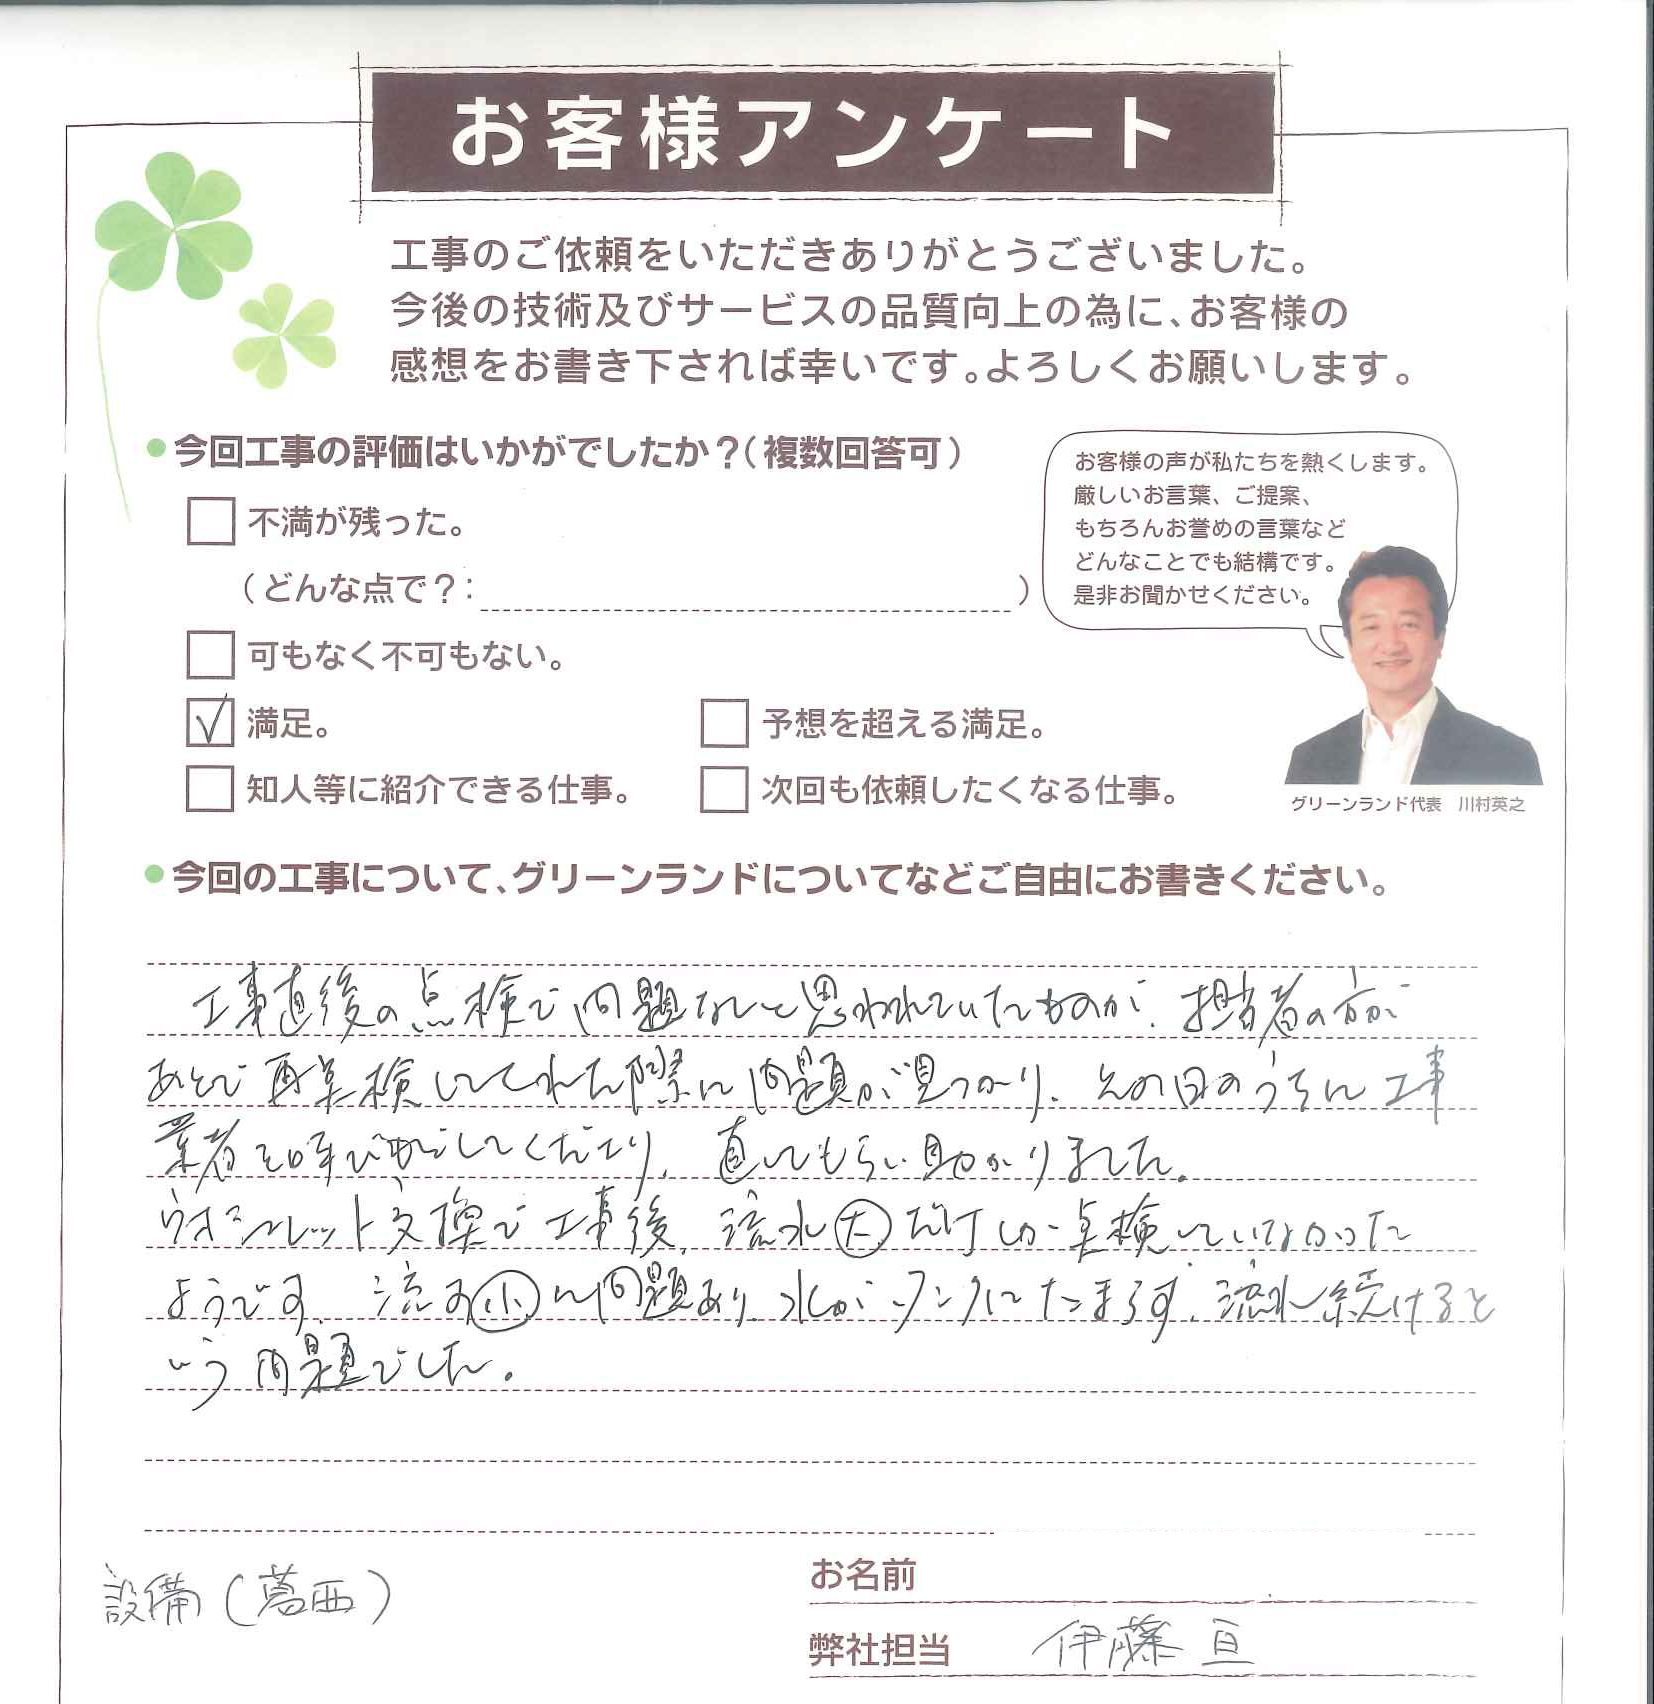 お客様アンケート
工事のご依頼をいただきありがとうございました。
今後の技術及びサービスの品質向上の為に、お客様の
感想をお書き下されば幸いです。よろしくお願いします。
●今回工事の評価はいかがでしたか？（複数回答可）
不満が残った。
（どんな点で？：　）
可もなく不可もない。
✓満足。
予想を超える満足。
知人等に紹介できる仕事。
次回も依頼したくなる仕事。
お客様の声が私たちを熱くします。
厳しいお言葉、ご提案、
もちろんお誉めの言葉など
どんなことでも結構です。
是非お聞かせください。
グリーンランド代表　川村英之
●今回の工事について、グリーンランドについてなどご自由にお書きください。
工事直後の点検で問題ないと思われていたものが、担当者の方が
あとで再点検してくれた際に問題が見つかり、その日のうちに工事
業者を呼び出してくださり、直してもらい助かりました。
ウォシュレット交換で工事後、流水大だけしか点検していなかった
ようです。流す小に問題あり、水がタンクにたまらず、流れ続けると
いう問題でした。
設備（葛西）
お名前
弊社担当　伊藤 亘